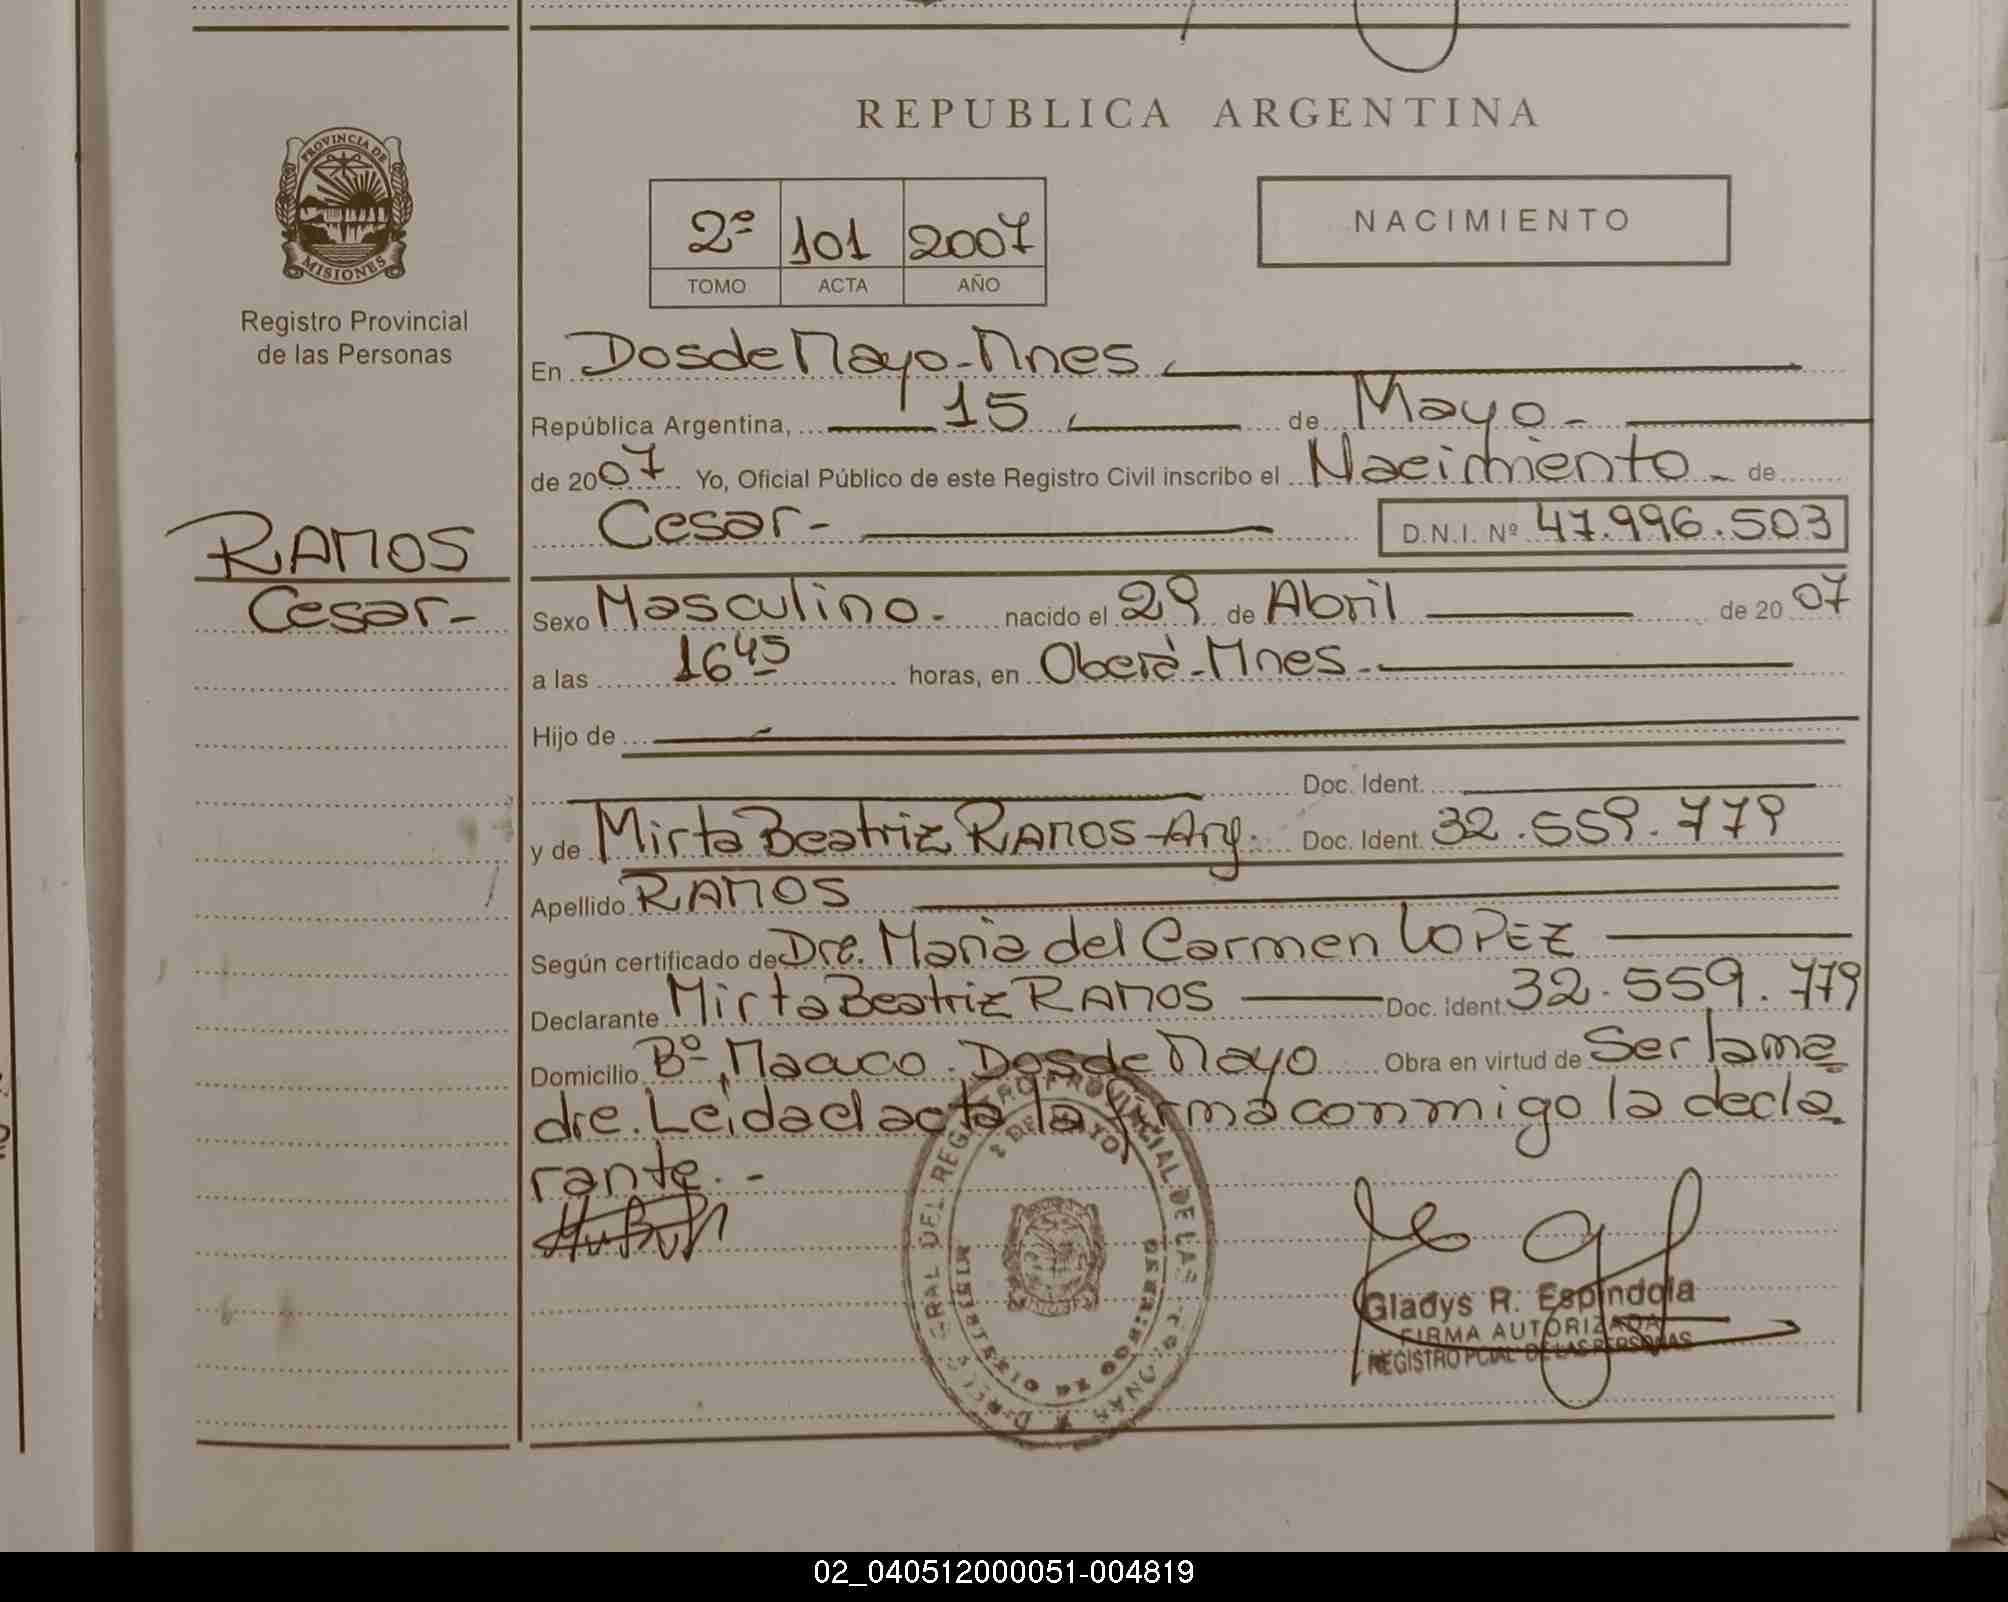 REPUBLICA ARGENTINA
PROVINCIA DE
MISIONES
Registro Provincial
de las Personas
2º 101 2007
TOMO ACTA AÑO
NACIMIENTO
En Dos de Mayo - Mnes
República Argentina, 15 de Mayo -
de 2007 Yo, Oficial Público de este Registro Civil inscribo el Nacimiento - de
Cesar - D.N.I. Nº 47.996.503
RAMOS
Cesar -
Sexo Masculino - nacido el 29 de Abril de 2007
a las 16 45 horas, en Oberá - Mnes -
Hijo de
Doc. Ident.
y de Mirta Beatriz RAMOS - Arg. Doc. Ident. 32.559.779
Apellido RAMOS
Según certificado de Dra. Maria del Carmen LOPEZ
Declarante Mirta Beatriz RAMOS Doc. Ident. 32.559.779
Domicilio Bº Macuco - Dos de Mayo Obra en virtud de Ser la ma
dre. Leida el acta la firma conmigo la decla
rante. -
Gladys R. Espindola
FIRMA AUTORIZADA
REGISTRO PCIAL DE LAS PERSONAS
02_040512000051-004819